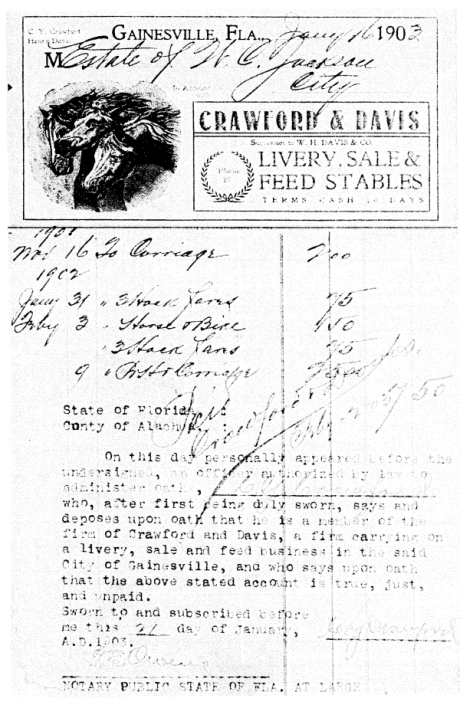 C. Y. Crawford
Henry Davis
GAINESVILLE, FLA., Jany 16 1903
M Estate of W. C. Jackson
City
To Account
CRAWFORD & DAVIS
Successors to W. H. DAVIS & CO.
Phone
LIVERY, SALE &
FEED STABLES
TERMS CASH 30 DAYS
1901
Nov 16 To Carriage 2 00
1902
Jany 31 " 3 Hack Fares 75
Feby 3 " Horse & 1 50
" 3 Hack Fares 75
9 " Carriage 2 50
7 50
State of Florida :
Cunty of Alachua. :
On this day personally appeared before the
undersigned, an officer authorized by law to
administer oath,
who, after first being duly sworn, says and
deposes upon oath that he is a member of the
firm of Crawford and Davis, a firm carrying on
a livery, sale and feed business in the said
City of Gainesville, and who says upon oath
that the above stated account is true, just,
and unpaid.
Sworn to and subscribed before
me this 21 day of January,
A.D.1903.
NOTARY PUBLIC STATE OF FLA. AT LARGE